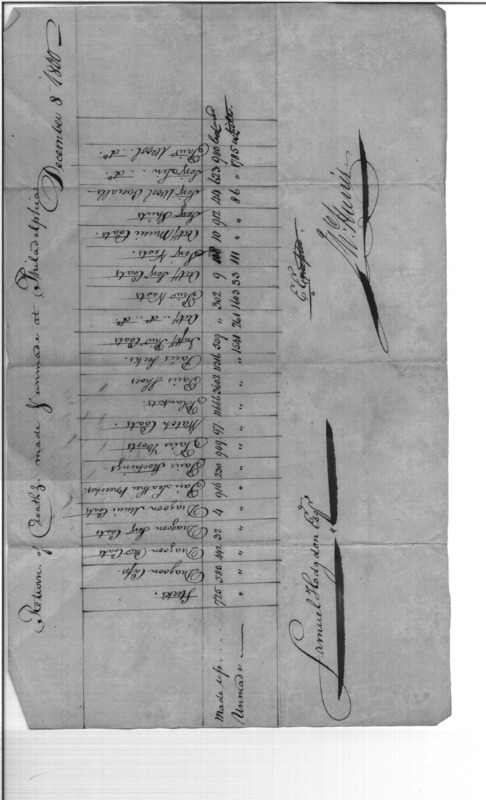 Return of Cloathg. made & unmade at Philadelphia December 8th 1800
Stocks.
Dragoon Caps
Dragoon Priv Coats
Dragoon Serj Coats
Dragoon Musi Coats
Pair Leather Breeches
Pair Stockings
Pairs Boots
Watch Coats.
Blankets.
Pairs Shoes
Pairs Socks.
Infy Priv Coats
Arty.. do.. do.
Priv Vests
Arty Serj Coats
Serj Vests.
Arty Musici Coats.
Serj Shirts
Serj Wool Overalls
Serj Lin. .. do.
Priv Wool. .. do.
Made up .... 725 380 492 32 4 916 230 909 97 1666 3602 11316 509 " 302 9 10 912 149 623 980
Unmade " " " " " " " " " " " " 1541 261 1603 33 111 " " 86 " 1785
Samuel Hodgdon Esqr.
Wm. Harris